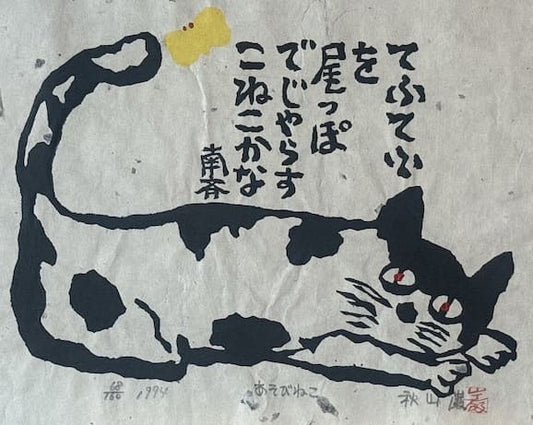 てふてふ
を
尾っぽ
でじゃらす
こねこかな
南斉
1994
あそびねこ
秋山 巌